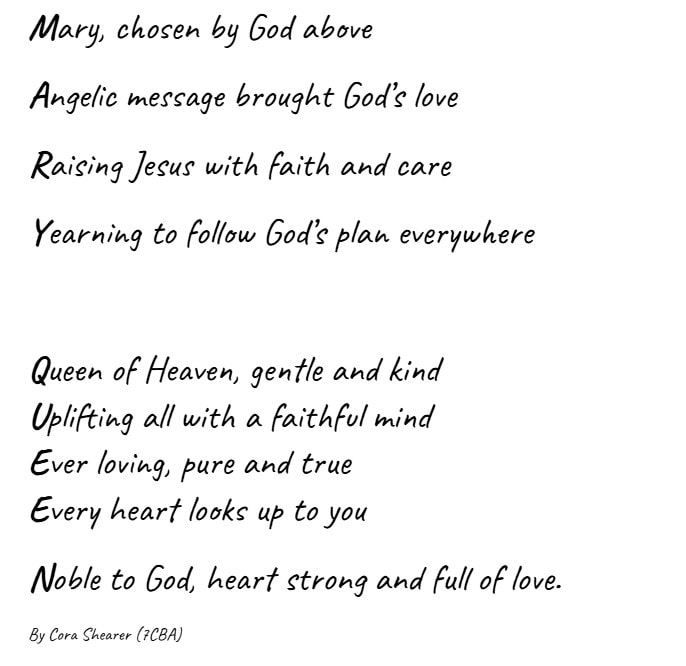 Mary, chosen by God above
Angelic message brought God’s love
Raising Jesus with faith and care
Yearning to follow God’s plan everywhere
Queen of Heaven, gentle and kind
Uplifting all with a faithful mind
Ever loving, pure and true
Every heart looks up to you
Noble to God, heart strong and full of love.
By Cora Shearer (7CBA)